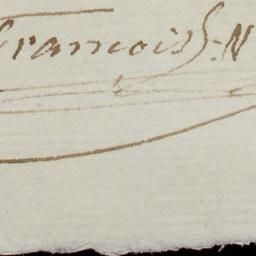 francois. N